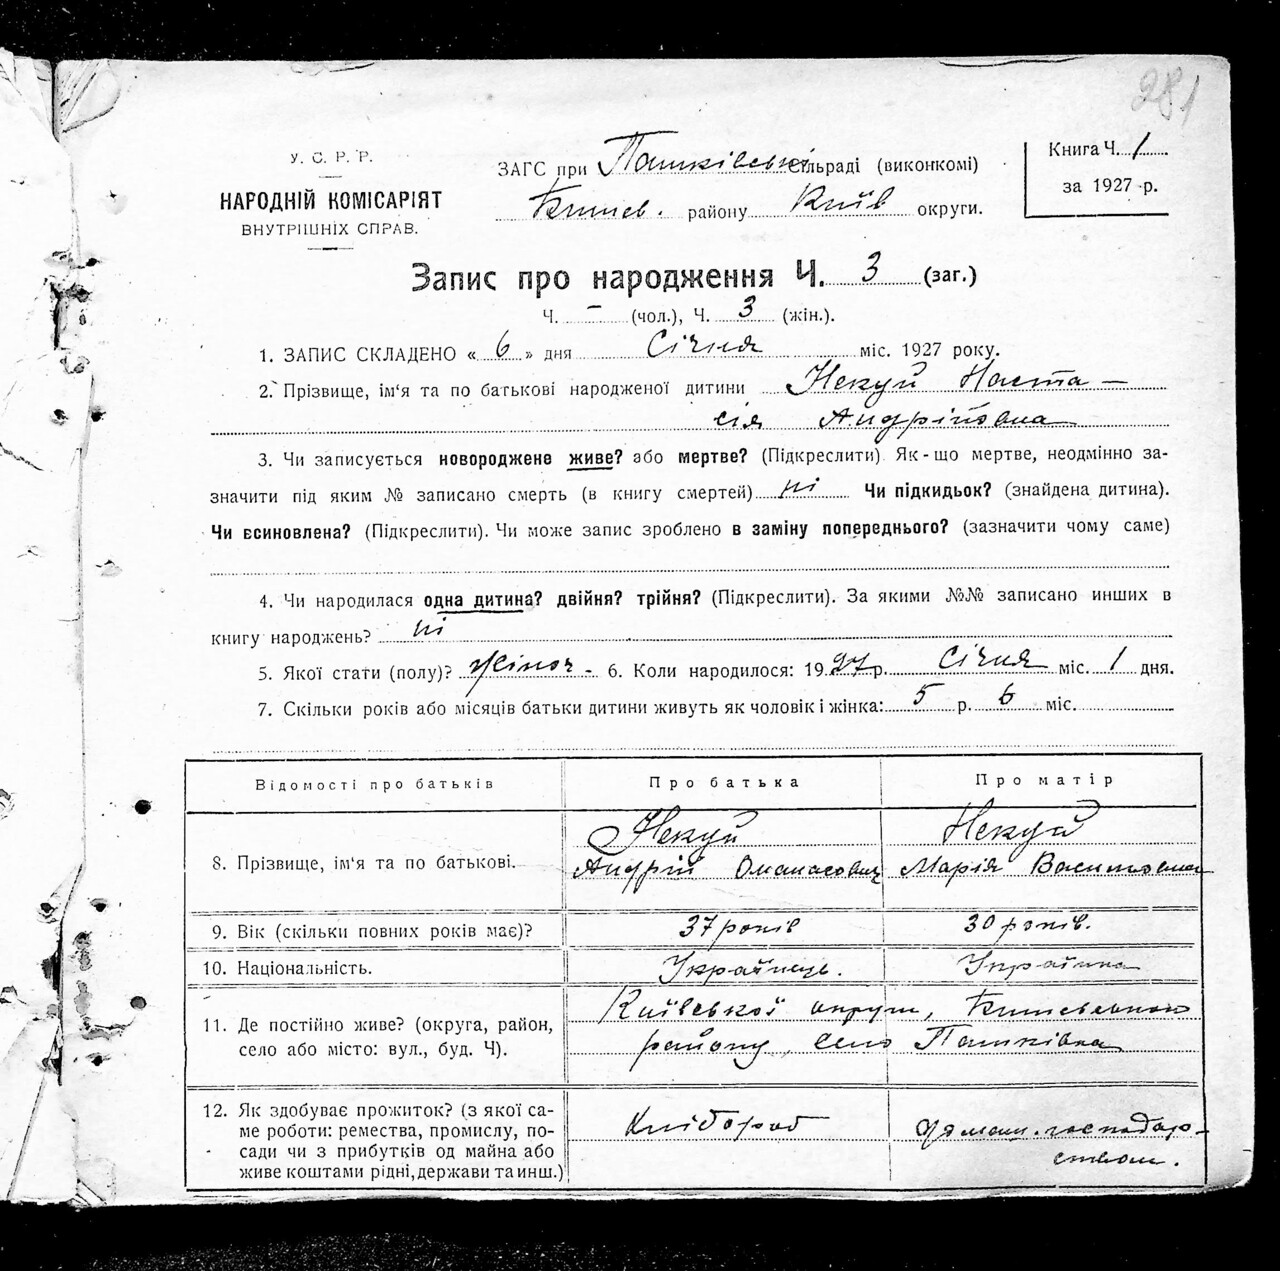 281
У. С. Р. Р.
НАРОДНІЙ КОМІСАРІЯТ
ВНУТРІШНІХ СПРАВ.
ЗАГС при Пашківські сільраді (виконкомі)
Бишев. району Київ округи.
Книга Ч. 1
за 1927 р.
Запис про народження Ч. 3 (заг.)
Ч. – (чол.), Ч. 3 (жін.).
1. ЗАПИС СКЛАДЕНО « 6 » дня Січня міс. 1927 року.
2. Прізвище, ім'я та по батькові народженої дитини Некуй Наста-
сія Андріївна
3. Чи записується новороджене живе? або мертве? (Підкреслити). Як-що мертве, неодмінно за-
значити під яким № записано смерть (в книгу смертей) ні Чи підкидьок? (знайдена дитина).
Чи всиновлена? (Підкреслити). Чи може запис зроблено в заміну попереднього? (зазначити чому саме)
4. Чи народилася одна дитина? двійня? трійня? (Підкреслити). За якими №№ записано инших в
книгу народжень? ні
5. Якої стати (полу)? жіноч - 6. Коли народилося: 1927 р. Січня міс. 1 дня.
7. Скільки років або місяців батьки дитини живуть як чоловік і жінка: 5 р. 6 міс.
Відомості про батьків Про батька Про матір
8. Прізвище, ім'я та по батькові. Некуй Андрій Опанасович Некуй Марія Василівна
9. Вік (скільки повних років має)? 37 років 30 років.
10. Національність. Українець. Українка
11. Де постійно живе? (округа, район,
село або місто: вул., буд. Ч). Київської округи, Бишевського
району, село Пашківка
12. Як здобуває прожиток? (з якої са-
ме роботи: ремества, промислу, по-
сади чи з прибутків од майна або
живе коштами рідні, держави та инш.) Хлібороб господар-
ством.